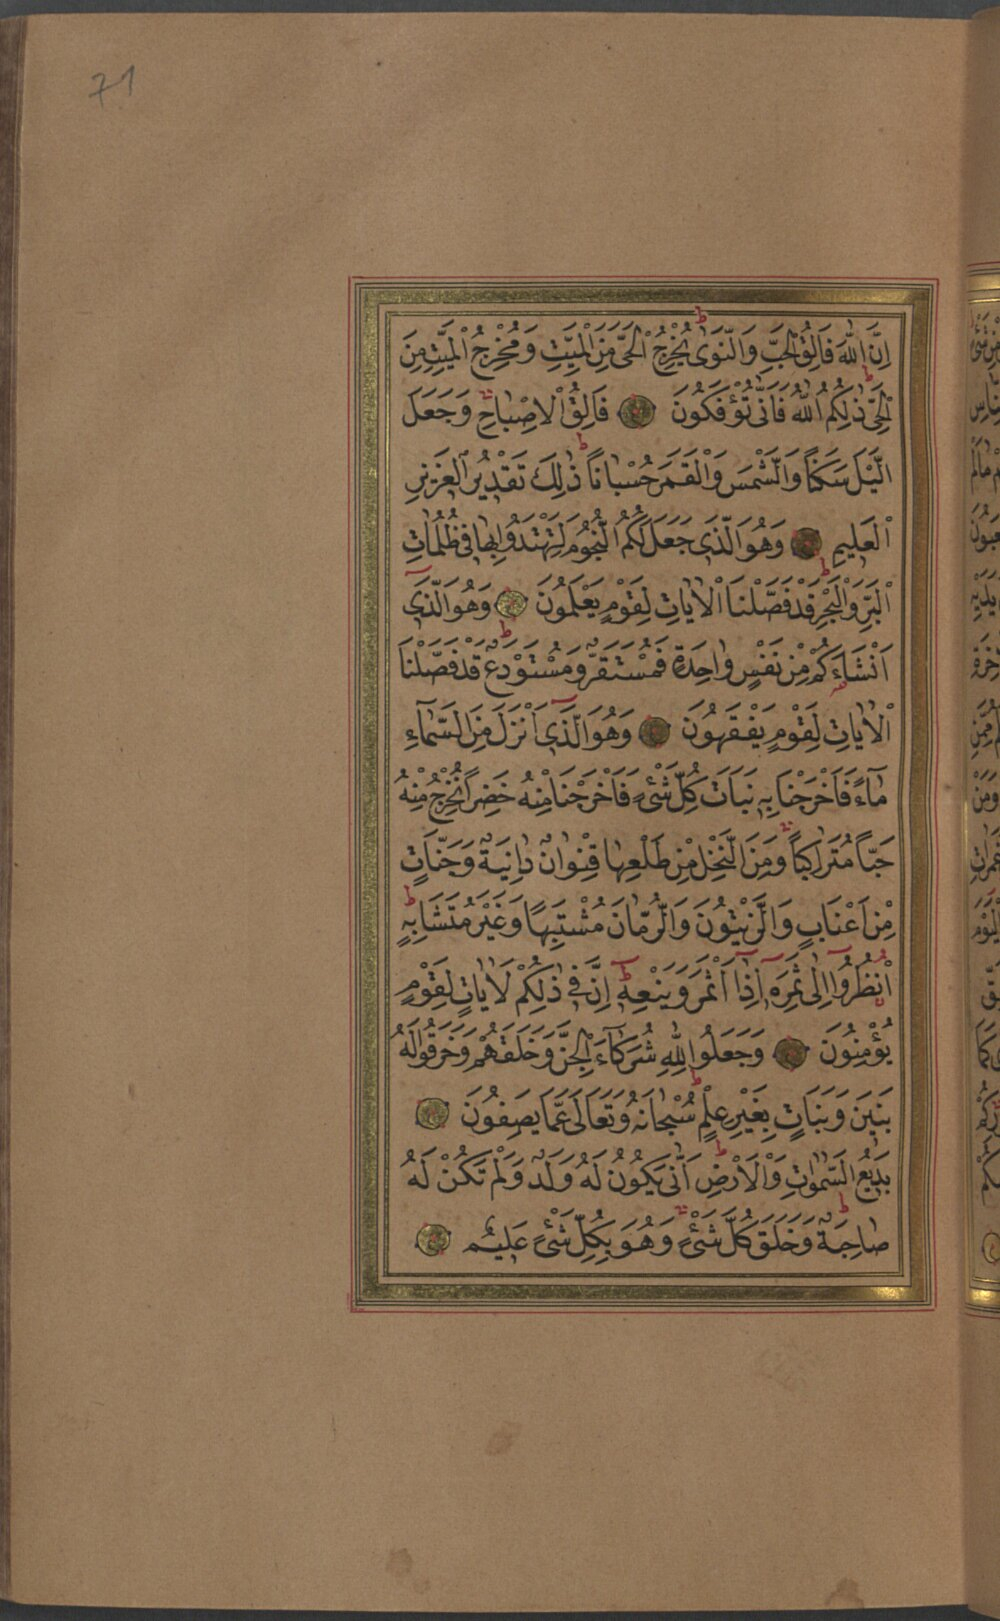 71
اِنَّ اللّٰهَ فَالِقُ الْحَبِّ وَالنَّوٰى يُخْرِجُ الْحَيَّ مِنَ الْمَيِّتِ وَمُخْرِجُ الْمَيِّتِ مِنَ
الْحَيِّ ذٰلِكُمُ اللّٰهُ فَاَنّٰى تُؤْفَكُونَ فَالِقُ الْاِصْبَاحِ وَجَعَلَ
الَّيْلَ سَكَنًا وَالشَّمْسَ وَالْقَمَرَ حُسْبَانًا ذٰلِكَ تَقْدِيرُ الْعَزِيزِ
الْعَلِيمِ وَهُوَ الَّذِى جَعَلَ لَكُمُ النُّجُومَ لِتَهْتَدُوا بِهَا فِى ظُلُمَاتِ
الْبَرِّ وَالْبَحْرِ قَدْ فَصَّلْنَا الْاٰيَاتِ لِقَوْمٍ يَعْلَمُونَ وَهُوَ الَّذِى
اَنْشَاَكُمْ مِنْ نَفْسٍ وَاحِدَةٍ فَمُسْتَقَرٌّ وَمُسْتَوْدَعٌ قَدْ فَصَّلْنَا
الْاٰيَاتِ لِقَوْمٍ يَفْقَهُونَ وَهُوَ الَّذِى اَنْزَلَ مِنَ السَّمَآءِ
مَآءً فَاَخْرَجْنَا بِهِ نَبَاتَ كُلِّ شَىْءٍ فَاَخْرَجْنَا مِنْهُ خَضِرًا نُخْرِجُ مِنْهُ
حَبًّا مُتَرَاكِبًا وَمِنَ النَّخْلِ مِنْ طَلْعِهَا قِنْوَانٌ دَانِيَةٌ وَجَنَّاتٍ
مِنْ اَعْنَابٍ وَالزَّيْتُونَ وَالرُّمَّانَ مُشْتَبِهًا وَغَيْرَ مُتَشَابِهٍ
اُنْظُرُوا اِلٰى ثَمَرِهِ اِذَا اَثْمَرَ وَيَنْعِهِ اِنَّ فِى ذٰلِكُمْ لَاٰيَاتٍ لِقَوْمٍ
يُؤْمِنُونَ وَجَعَلُوا لِلّٰهِ شُرَكَآءَ الْجِنَّ وَخَلَقَهُمْ وَخَرَقُوا لَهُ
بَنِينَ وَبَنَاتٍ بِغَيْرِ عِلْمٍ سُبْحَانَهُ وَتَعَالٰى عَمَّا يَصِفُونَ
بَدِيعُ السَّمٰوَاتِ وَالْاَرْضِ اَنّٰى يَكُونُ لَهُ وَلَدٌ وَلَمْ تَكُنْ لَهُ
صَاحِبَةٌ وَخَلَقَ كُلَّ شَىْءٍ وَهُوَ بِكُلِّ شَىْءٍ عَلِيمٌ